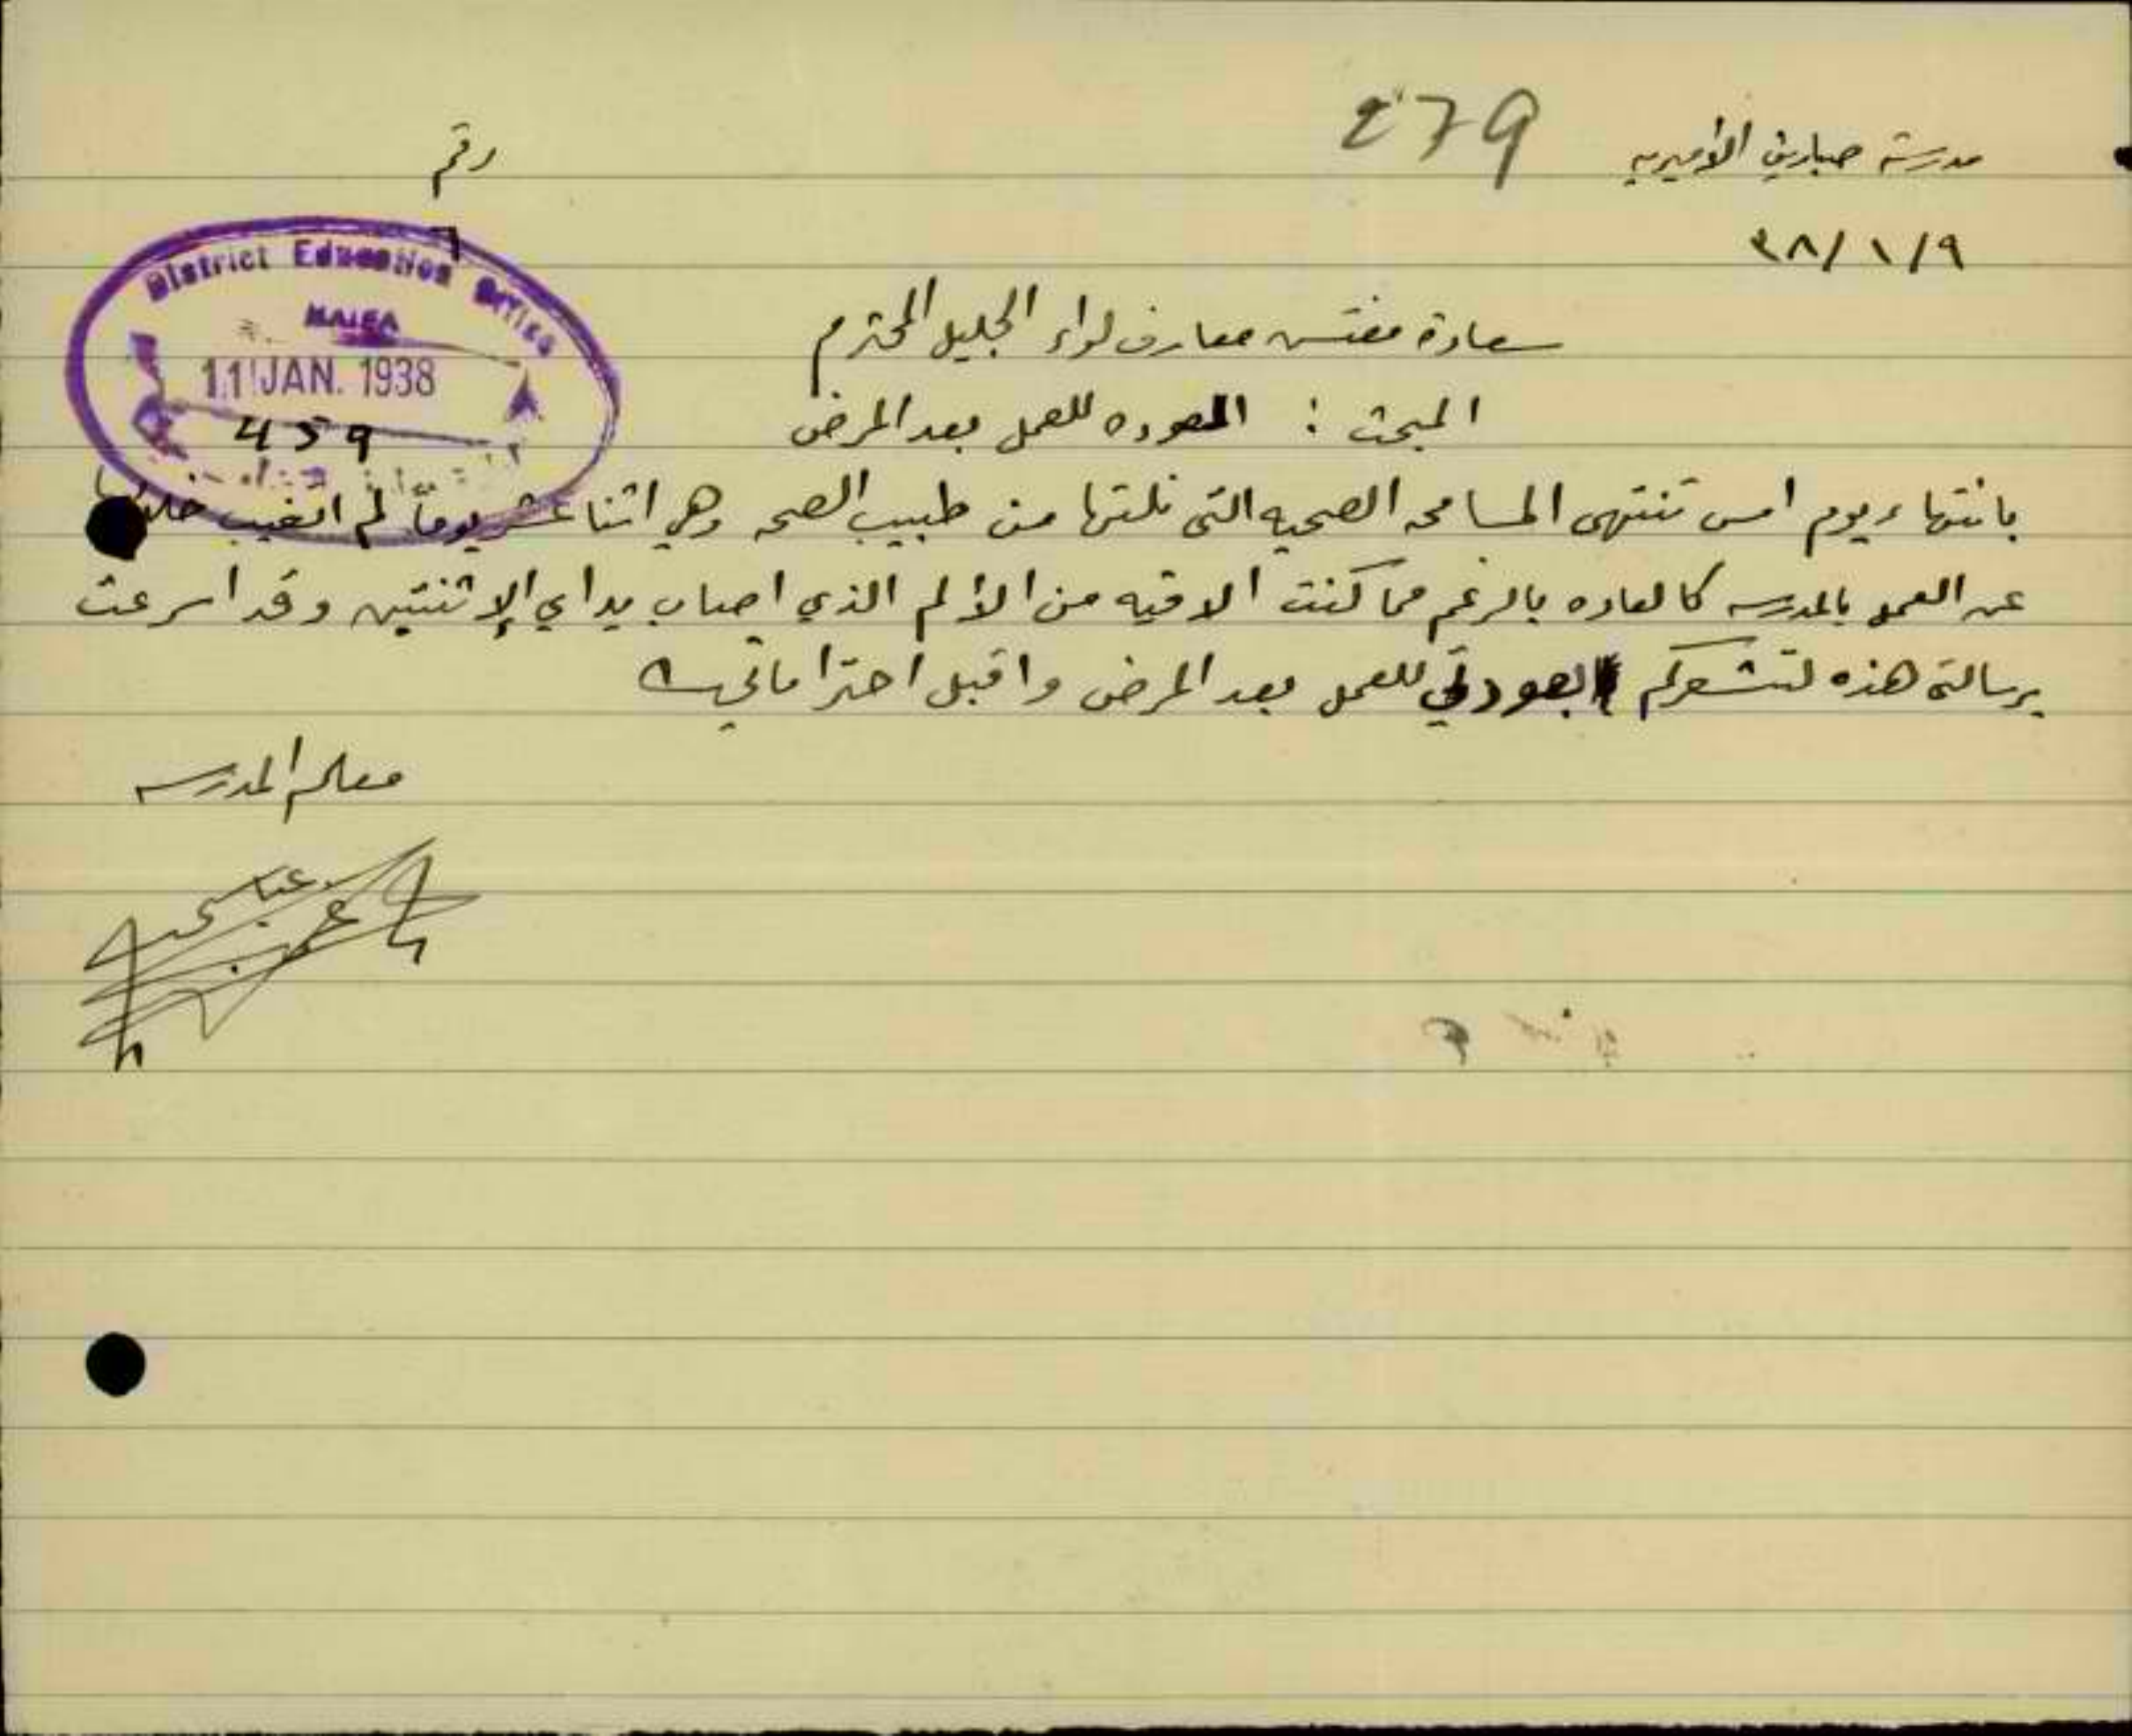 مدرسة صبارين الأميريه
279
رقم
٩/١/٣٨
District Education Office
HAIFA
11 JAN. 1938
459
سعادة مفتش معارف لواء الجليل المحترم
المبحث : العوده للعمل بعد المرض
بانتهاء يوم امس تنتهى المسامحه الصحيه التى نلتها من طبيب الصحه وهي اثنا عشر يوماً لم اتغيب خلالها
عن العمل بالمدرسه كالعاده بالرغم مما كنت الاقيه من الألم الذي اصاب يداي الإثنتين وقد اسرعت
برسالتى هذه لتشعركم بعودتي للعمل بعد المرض واقبل احتراماتي
معلم المدرسه